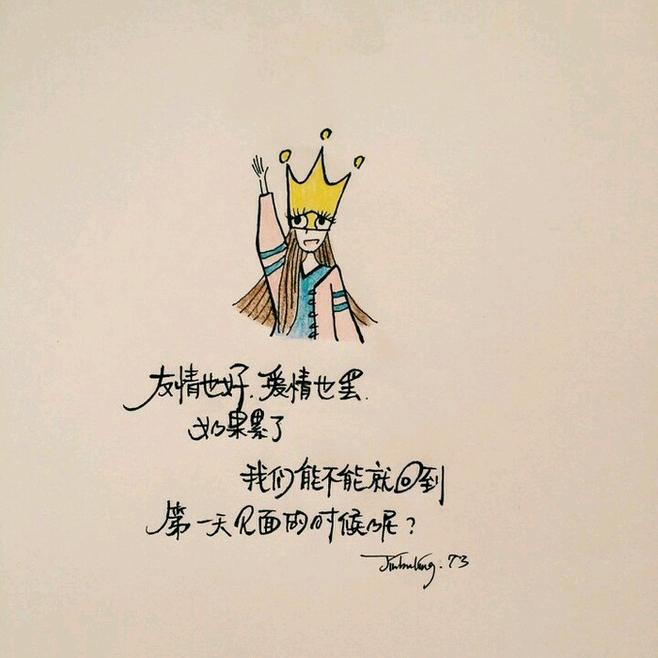 友情也好.爱情也罢.
如果累了
我们能不能就回到
第一天见面的时候呢？
73